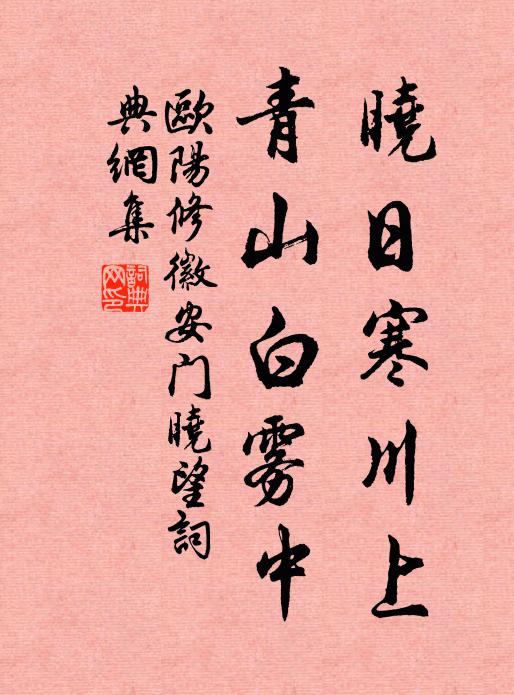 曉日寒川上
青山白雾中
歐陽修徽安门曉望詞
典網集
詞典网印